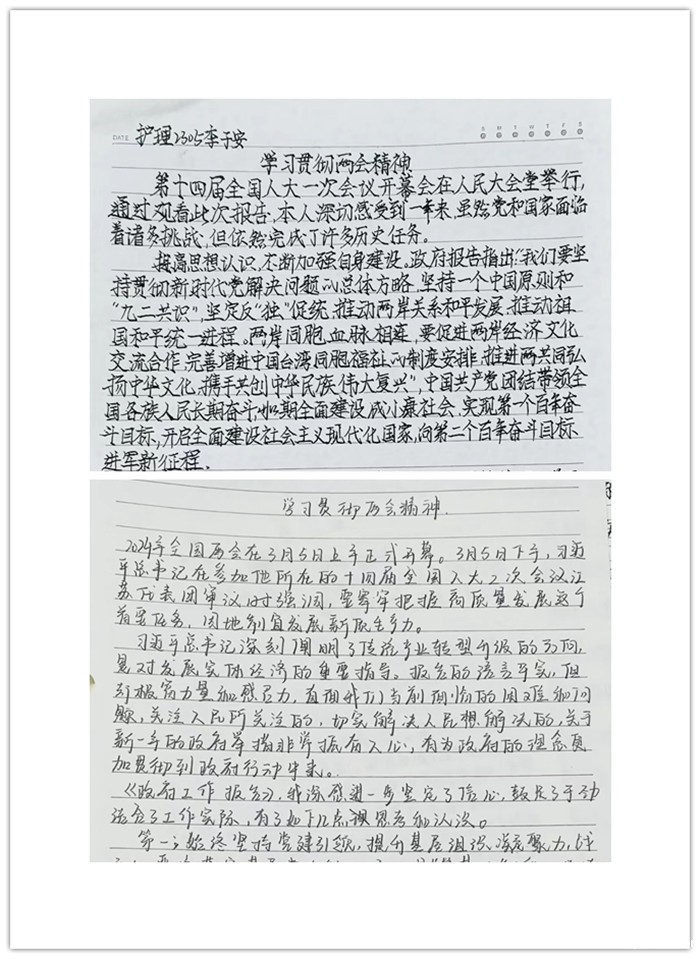 DATE
S M T W T F S
护理2305李子安
学习贯彻两会精神
第十四届全国人大一次会议开幕会在人民大会堂举行,
通过观看此次报告,本人深切感受到一年来,虽然党和国家面临
着诸多挑战,但依然完成了许多历史任务。
提高思想认识,不断加强自身建设。政府报告指出:“我们要坚
持贯彻新时代党解决问题的总体方略,坚持一个中国原则和
“九二共识”,坚定反“独”促统,推动两岸关系和平发展,推动祖
国和平统一进程。两岸同胞,血脉相连,要促进两岸经济文化
交流合作,完善增进中国台湾同胞福祉的制度安排,推进两共同弘
扬中华文化,携手共创中华民族伟大复兴”,中国共产党团结带领全
国各族人民长期奋斗,如期全面建设成小康社会,实现第一个百年奋
斗目标,开启全面建设社会主义现代化国家,向第二个百年奋斗目标
进军新征程。
学习贯彻两会精神.
2024年全国两会在3月5日上午正式开幕。3月5日下午,习近
平总书记在参加他所在的十四届全国人大2次会议江
苏代表团审议时强调,要牢牢把握高质量发展这个
首要任务,因地制宜发展新质生产力。
习近平总书记深刻阐明了传统产业转型升级的方向,
是对发展实体经济的重要指导。报告的语言平实,但
积极有力量和感召力,直面我们当前面临的困难和问
题,关注人民所关注的,切实解决人民想解决的,关于
新一年的政府举措非常振奋人心,有为政府的理念更
加贯彻到政府行动中来。
《政府工作报告》,我深感进一步坚定了信心,鼓足了干劲
结合了工作实际,有了如下几点思考和认识。
第一:始终坚持党建引领,提升基层组织凝聚力,